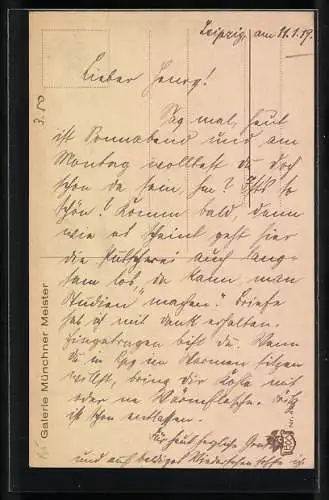 Leipzig, am 11.1.19.
Lieber Georg!
Sag mal, heut
ist Sonnabend und am
Montag wolltest du doch
schon da sein, hm? Ists so
schön? Komm bald, denn
wie es scheint geht hier
die Putscherei auch lang-
sam los, „da kann man
Studien machen.“ Briefe
hab ich mit Dank erhalten.
Eingetragen bist du. Wenn
du im Warmen sitzen
willst, bring dir Koks mit
oder ne Wärmflasche.
ist schon entlassen.
Für heut herzliche
und auf baldiges Wiedersehen hoffe ich
3.50
Galerie Münchner Meister
Nr.